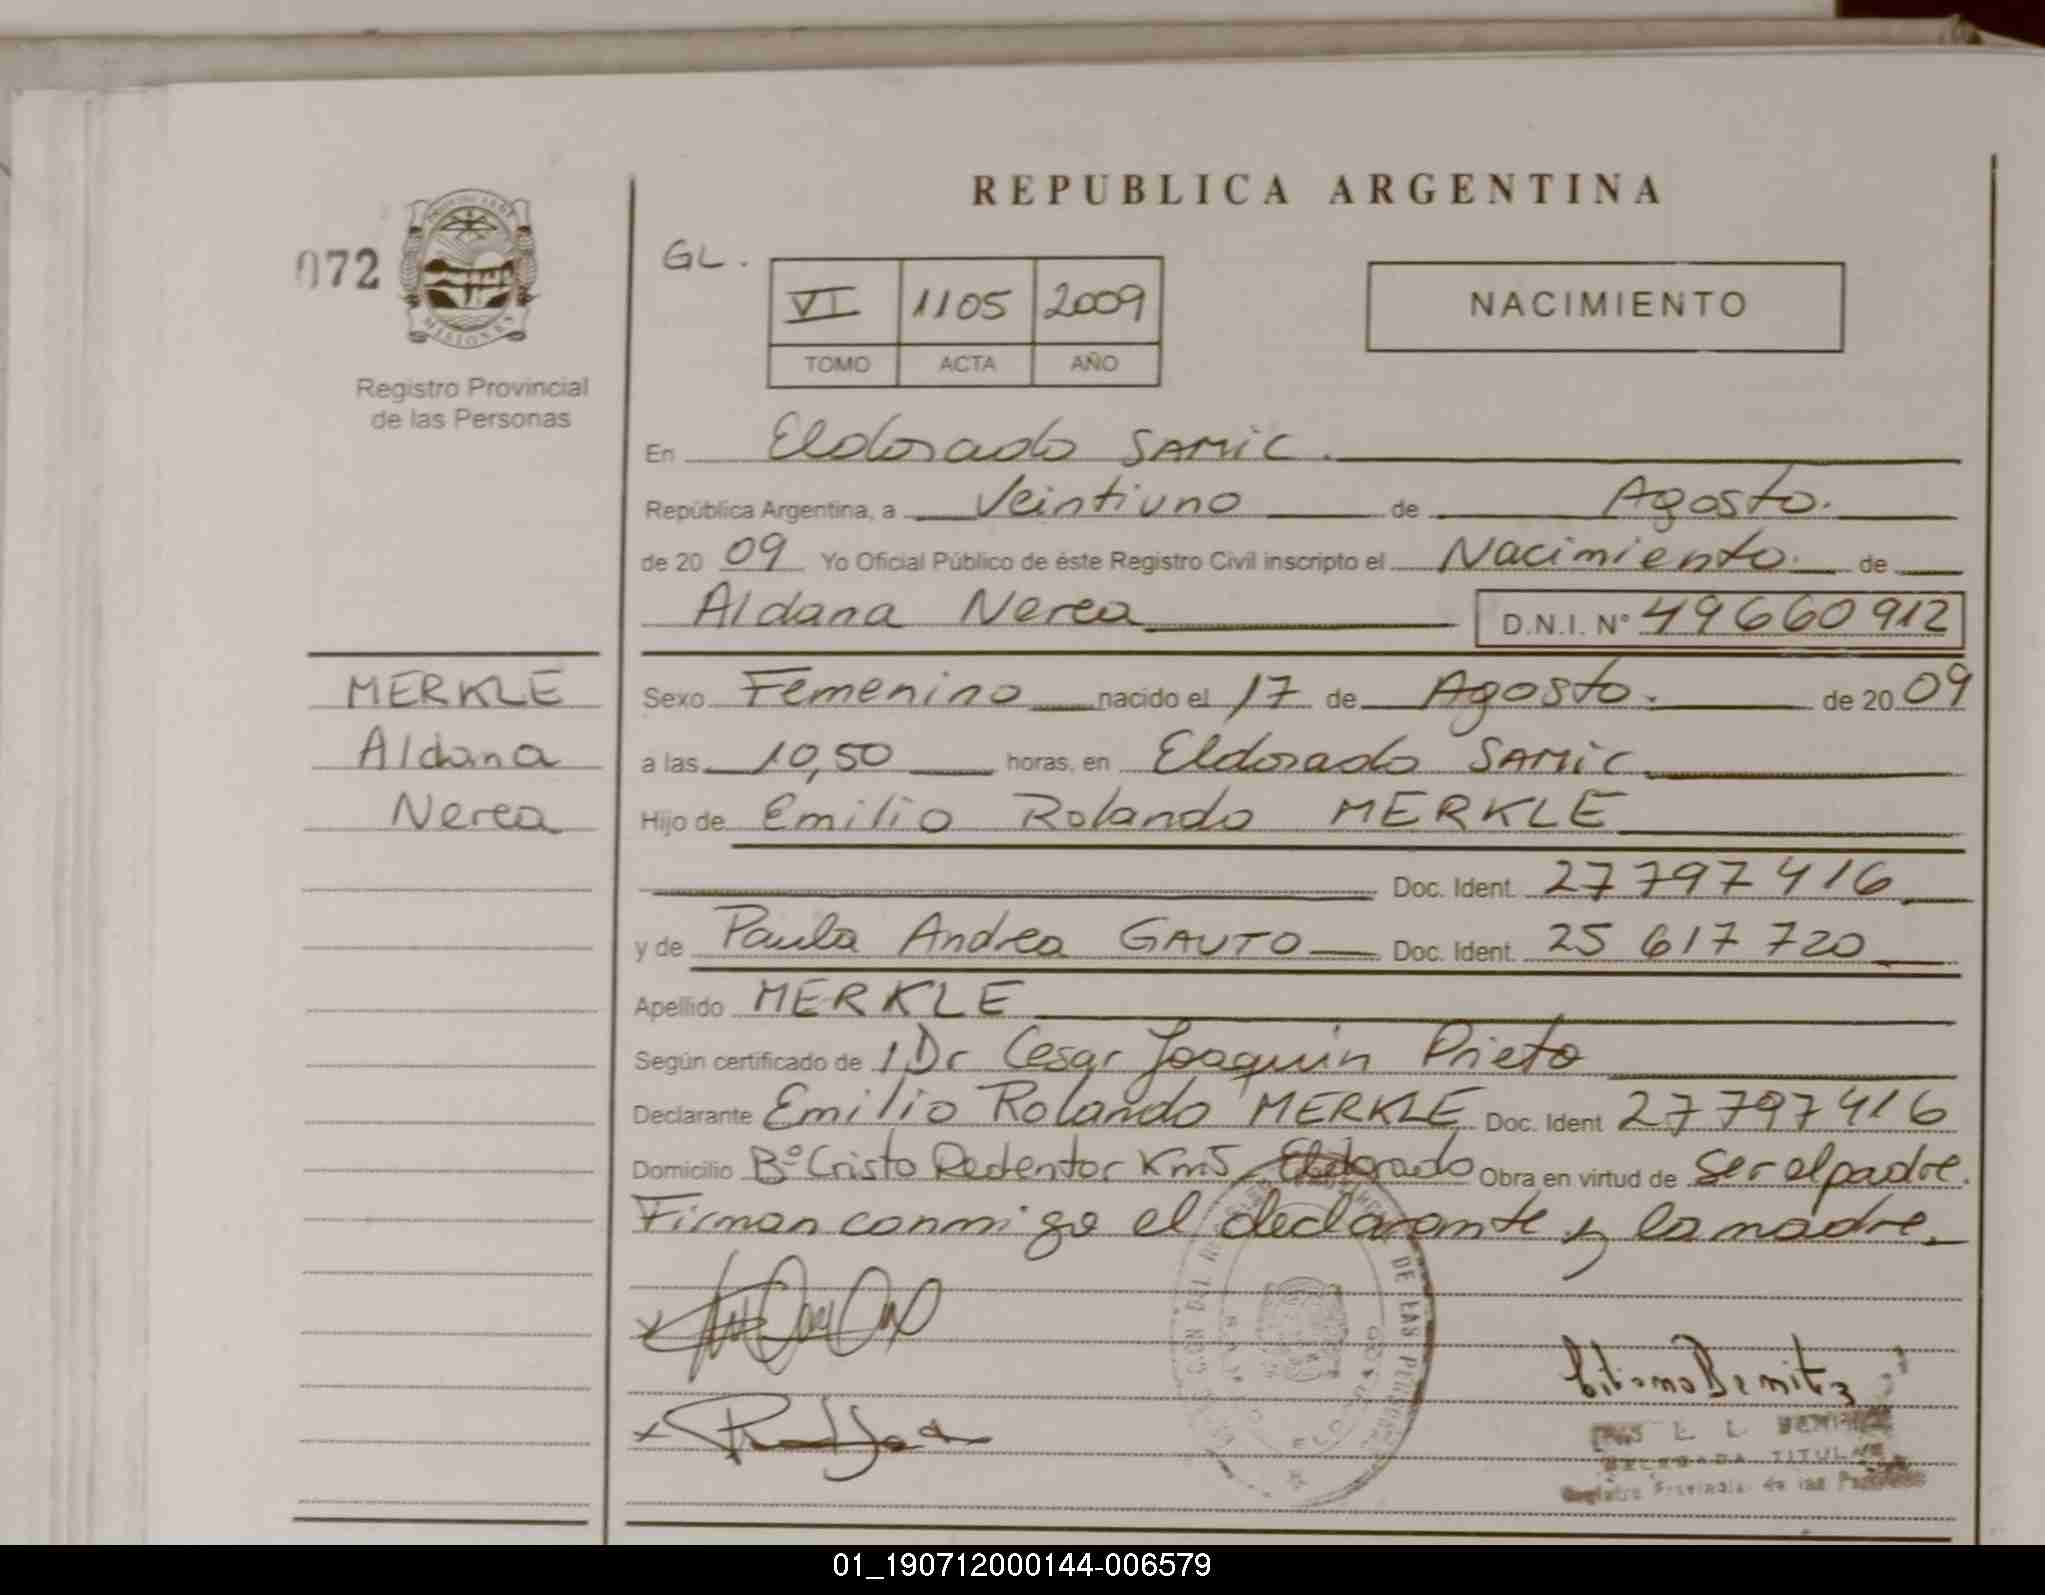 REPUBLICA ARGENTINA
072
PROVINCIA DE
MISIONES
Registro Provincial
de las Personas
GL.
VI 1105 2009
TOMO ACTA AÑO
NACIMIENTO
En Eldorado SAMIC.
República Argentina, a Veintiuno de Agosto.
de 20 09 Yo Oficial Público de éste Registro Civil inscripto el Nacimiento. de
Aldana Nerea D.N.I. N° 49660912
MERKLE
Aldana
Nerea
Sexo Femenino nacido el 17 de Agosto. de 20 09
a las 10,50 horas, en Eldorado SAMIC
Hijo de Emilio Rolando MERKLE
Doc. Ident. 27797416
y de Paula Andrea GAUTO Doc. Ident. 25 617 720
Apellido MERKLE
Según certificado de 1 Dr Cesar Joaquin Prieto
Declarante Emilio Rolando MERKLE Doc. Ident 27797416
Domicilio Bº Cristo Redentor Km5 Eldorado Obra en virtud de Ser el padre.
Firman conmigo el declarante y la madre.
DE LAS
ELDORADO
Benitez
TITULAR
Registro Provincial de las Personas
01_190712000144-006579